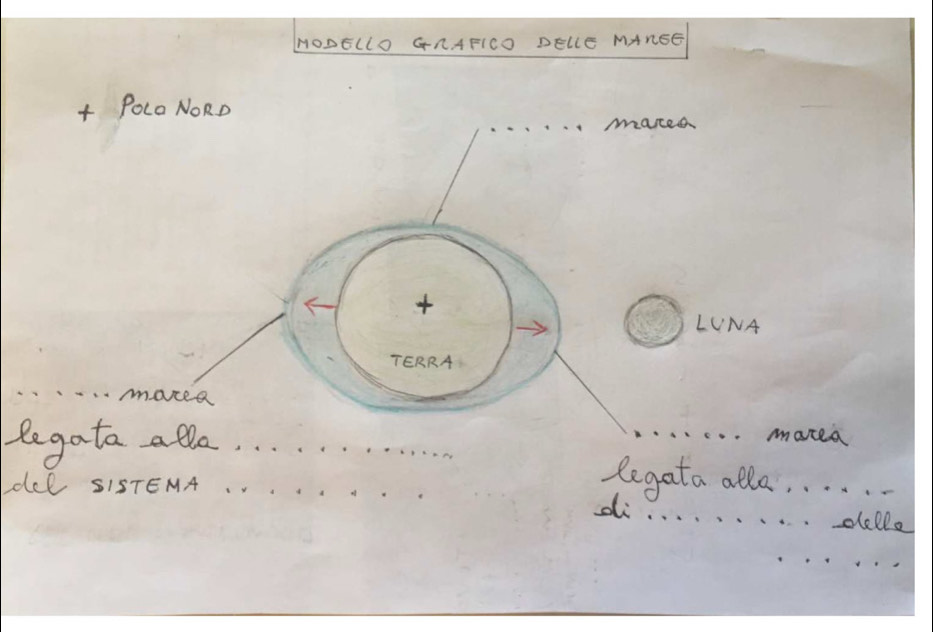 MODELLO GRAFICO DELLE MAREE
+ POLO NORD
...... marea
+
TERRA
LUNA
...... marea
legata alla ..............
del SISTEMA ........
....... marea
legata alla ......
di ......... della
......